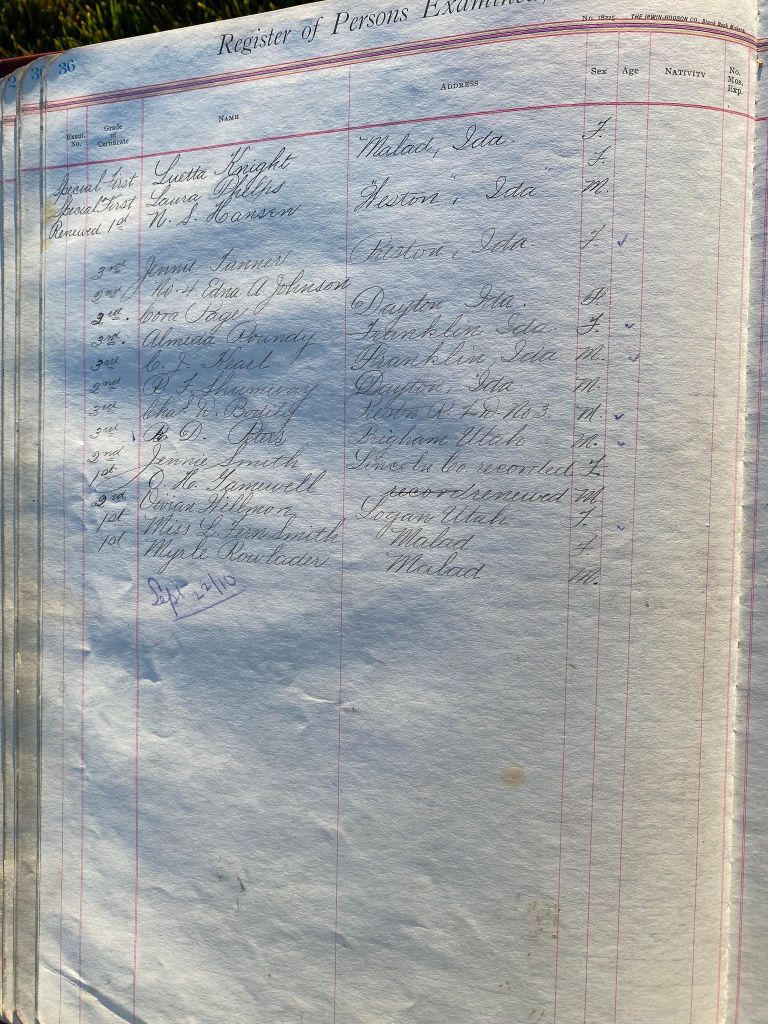 36 36
Register of Persons Examined,
No. 18225 THE IRWIN-HODSON CO., Blank Book Makers
Exam. No. Grade of Certificate NAME ADDRESS Sex Age NATIVITY No. Mos. Exp.
Special First Luetta Knight Malad, Ida. F.
Special First Laura Phelps F.
Renewed 1st N. S. Hansen Weston", Ida" M.
3rd Jennie Tanner Preston, Ida. F. ✓
2nd No. 4 Edna A Johnson
2nd. Cora Page Dayton Ida. F.
3rd. Almeda Poundy Franklin, Ida. F. ✓
3rd C. J. Kearl Franklin, Ida M. ✓
2nd P. L. Shumway Dayton, Ida. M.
3rd Chas. R. Bodily R. F. D. No 3. M. ✓
3rd R. D. Brigham Utah M. ✓
2nd Jennie Smith Lincoln Co. recorded F.
1st O. Ho. Gamewell record renewed M
2nd Vivian Hillman Logan Utah F. ✓
1st Miss L. Fern Smith Malad F.
1st Rowlader Malad M.
Sept 22/10